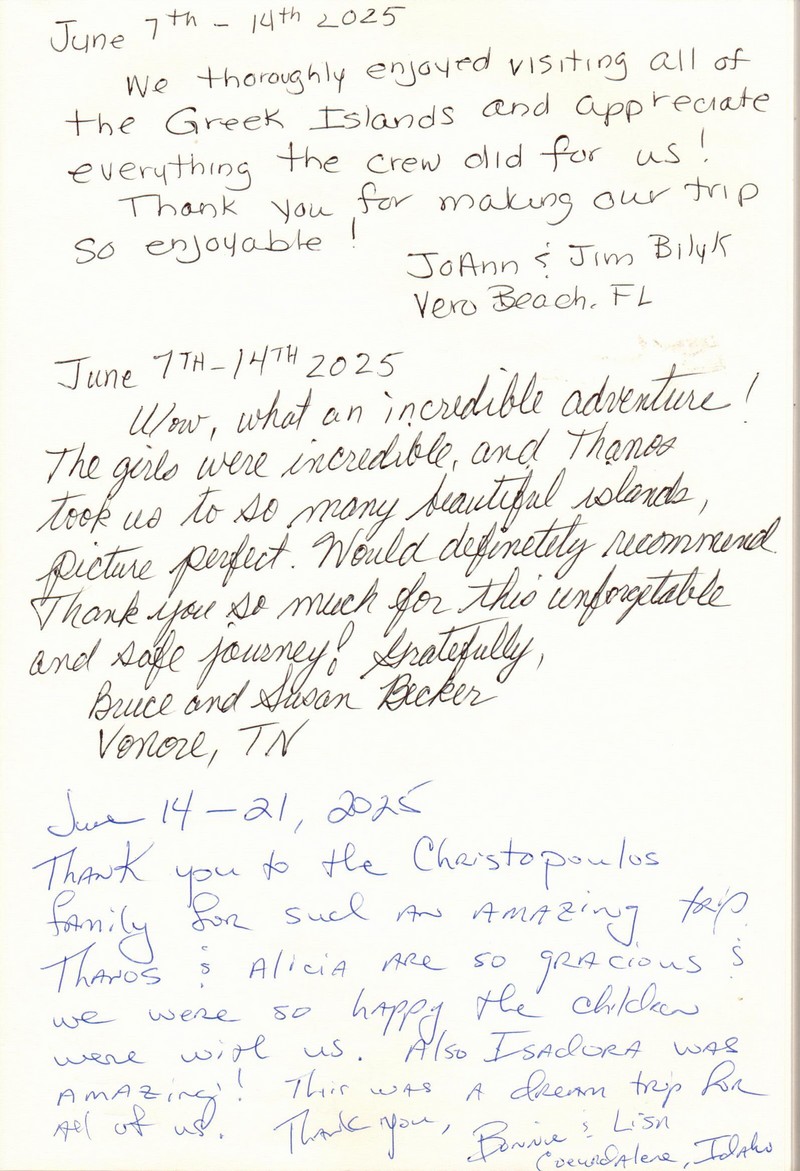 June 7th - 14th 2025
We thoroughly enjoyed visiting all of
the Greek Islands and appreciate
everything the crew did for us!
Thank you for making our trip
so enjoyable!
JoAnn & Jim Bilyk
Vero Beach, FL
June 7TH-14TH 2025
Wow, what an incredible adventure!
The girls were incredible, and Thanos
took us to so many beautiful islands,
picture perfect. Would definetely recommend
Thank you so much for this unforgetable
and safe journey! Gratefully,
Bruce and Susan Becker
Vonore, TN
June 14-21, 2025
Thank you to the Christopoulos
family for such an amazing trip.
Thanos & Alicia are so gracious &
we were so happy the children
were with us. Also Isadora was
amazing! This was a dream trip for
all of us. Thank you,
Bonnie & Lisa
Coeurdalene, Idaho